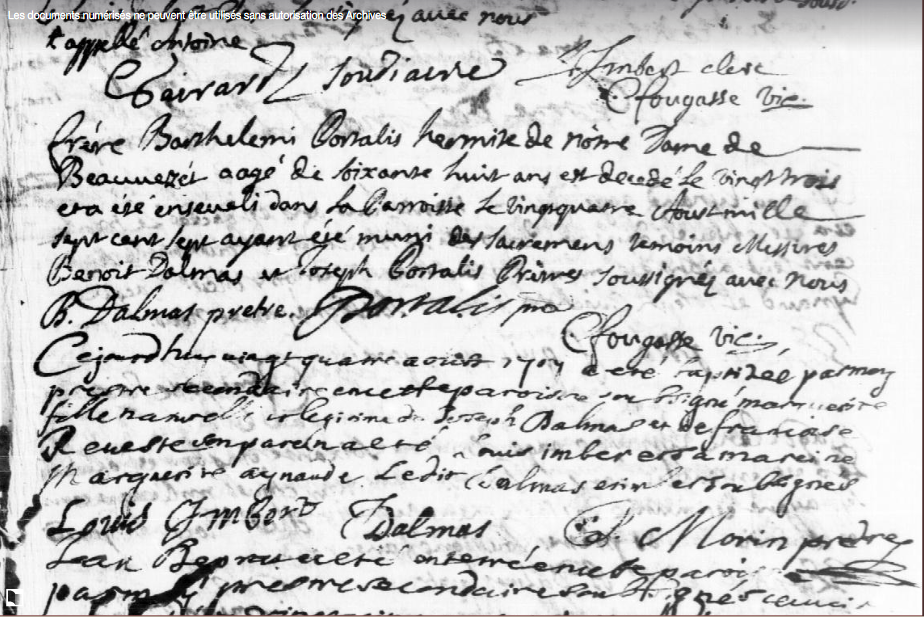 Les documents numérisés ne peuvent être utilisés sans autorisation des Archives
avec nous
appellé Antoine
Gairard soudiacre Imbert clerc
Cfougasse vic.
frére Barthelemi Portalis hermite de nôtre Dame de
Beauvezét aagé de soixante huit ans est decedé le vingt trois
et a eté enseveli dans la Parroisse le vingtquatre Aoust mille
sept cent sept ayant eté muni des sacremens temoins Messires
Benoit Dalmas et Joseph Portalis Prêtres soussignéz avec nous
B. Dalmas pretre. Portalis ptre
Cfougasse vic.
Cejourdhuy vingt quatre aoust 1707 a eté baptizée par moy
prestre secondaire en cette paroisse soubsigné marguerite
fille naturelle et legitime de Joseph Dalmas et de francoise
Reveste son parein a eté Louis imbert sa mareine
Marguerite aynaude. Ledit Dalmas et imbert soubsignes
Louis Imbert Dalmas Morin pretre
Jean a eté enterré en cette paroisse
par moy prestre secondaire soubsigné